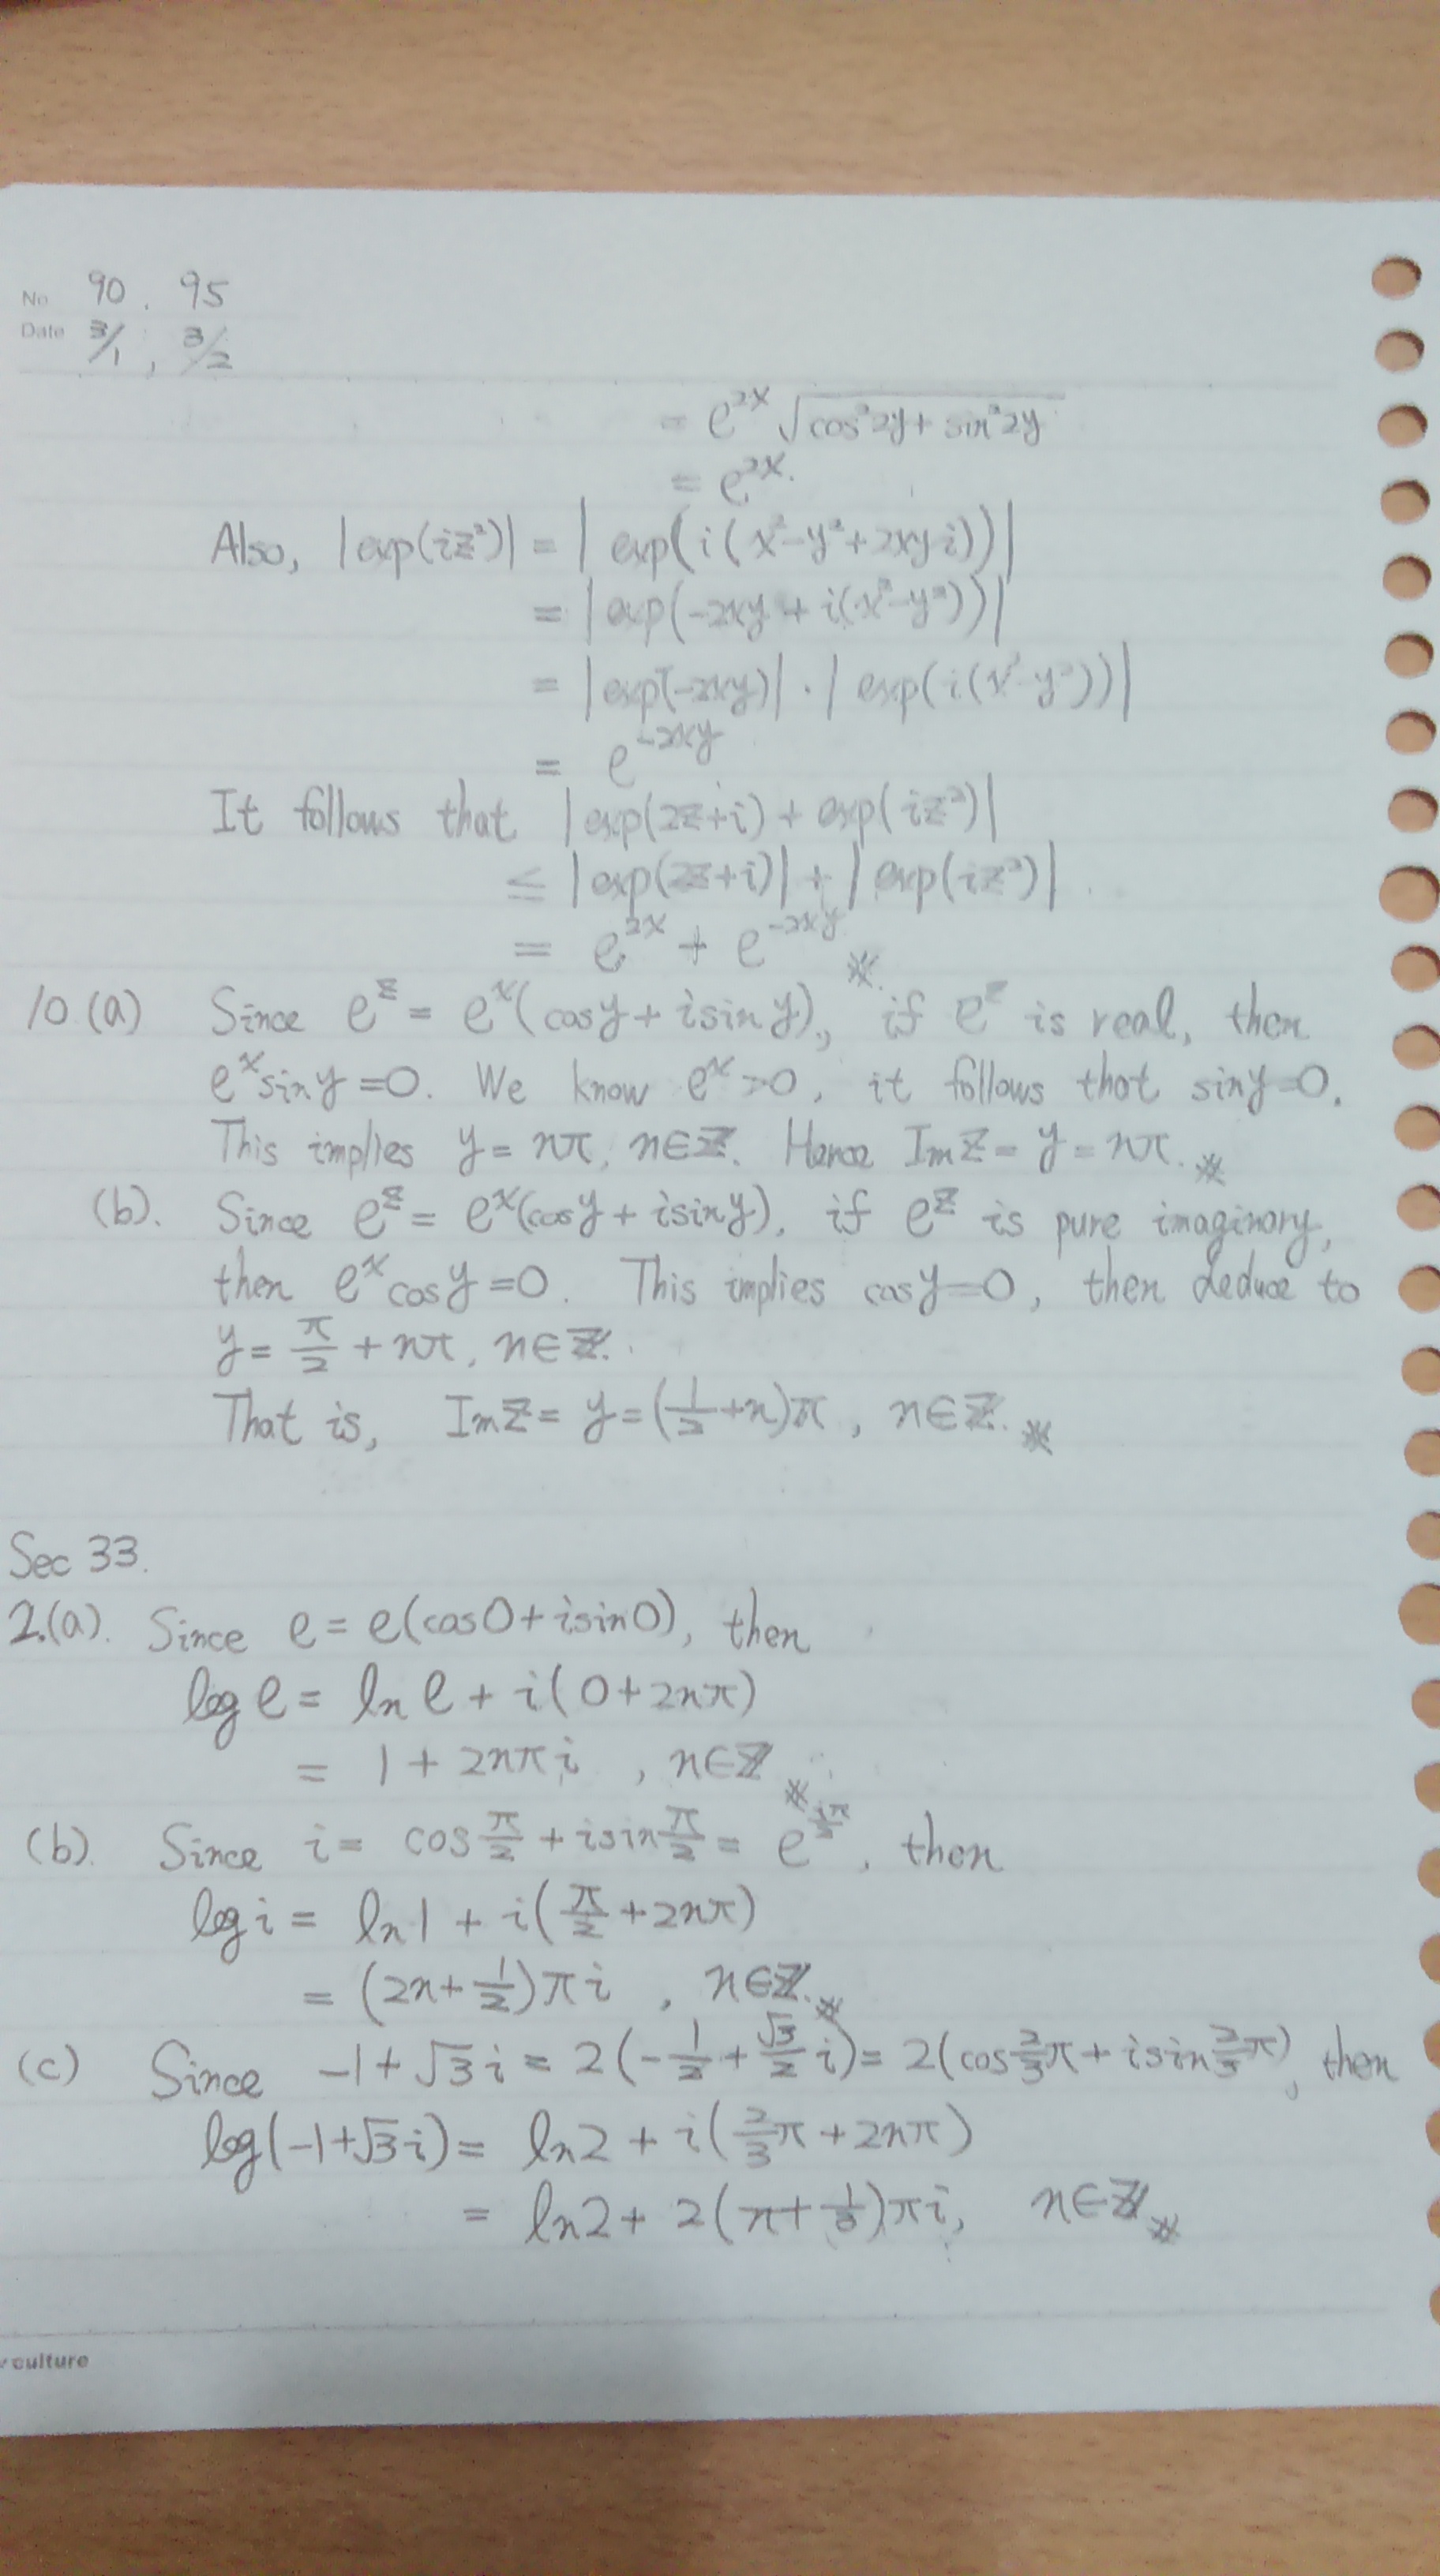 No 90. 95
Date 3/1, 3/2
= e^{2x} √(cos²2y + sin²2y)
= e^{2x}.
Also, |exp(iz²)| = | exp(i(x²-y²+2xyi))|
= |exp(-2xy + i(x²-y²))|
= |exp(-2xy)| · | exp(i(x²-y²))|
= e^{-2xy}
It follows that |exp(2z+i) + exp(iz²)|
≤ |exp(2z+i)| + | exp(iz²)|
= e^{2x} + e^{-2xy} ※
10.(a) Since e^z = e^x(cosy + isiny), if e^z is real, then
e^x siny = 0. We know e^x > 0, it follows that siny = 0.
This implies y = nπ, n∈ℤ. Hence Imz = y = nπ. ※
(b). Since e^z = e^x(cosy + isiny), if e^z is pure imaginary,
then e^x cosy = 0. This implies cosy = 0, then deduce to
y = π/2 + nπ, n∈ℤ.
That is, Imz = y = (1/2 + n)π, n∈ℤ. ※
Sec 33.
2.(a). Since e = e(cos0 + isin0), then
log e = ln e + i(0 + 2nπ)
= 1 + 2nπi , n∈ℤ ※
(b). Since i = cos π/2 + isin π/2 = e^{iπ/2}, then
log i = ln1 + i(π/2 + 2nπ)
= (2n + 1/2)πi , n∈ℤ. ※
(c) Since -1 + √3 i = 2(-1/2 + √3/2 i) = 2(cos 2/3 π + isin 2/3 π), then
log(-1+√3 i) = ln2 + i(2/3 π + 2nπ)
= ln2 + 2(n + 1/3)πi, n∈ℤ ※
culture